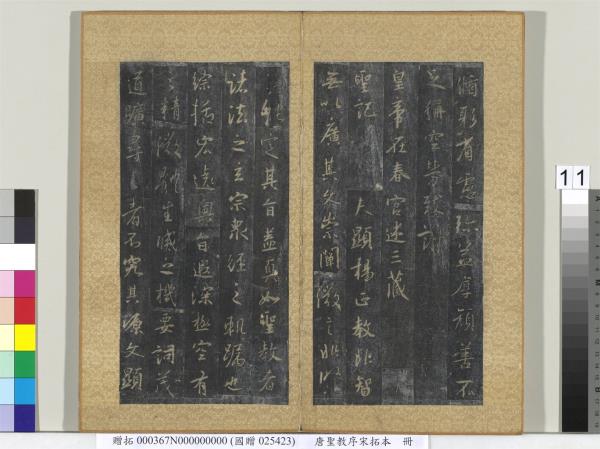 循躬省慮弥益厚顏善不
足稱空勞致謝
皇帝在春宮述三藏
聖記 夫顯揚正教非智
無以廣其文崇闡微言非賢
莫能定其旨蓋真如聖教者
諸法之玄宗衆經之軌躅也
綜括宏遠奧旨遐深極空有
之精微體生滅之機要詞茂
道曠尋之者不究其源文顯
11
贈拓 000367N000000000 (國贈 025423) 唐聖教序宋拓本 冊